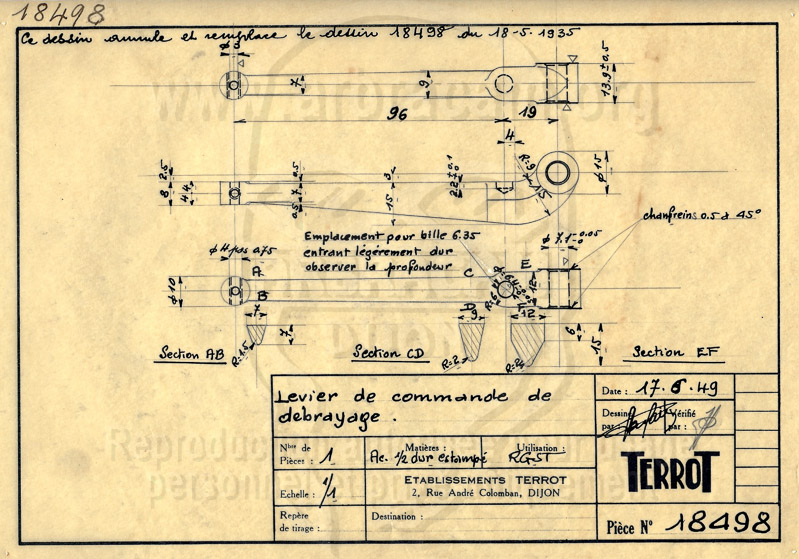 18498
Ce dessin annule et remplace le dessin 18498 du 18-5-1935
ø 3
7
9
13.9 ± 0.5
96
19
4
R=9
ø 15
2.5
8
0.5
7
0.5
3
15
15
chanfreins 0.5 à 45°
Emplacement pour bille 6.35
entrant légérement dur
observer la profondeur
ø 4 pas 0.75
ø 10
A
B
C
D
E
12
7
7
9
12
6
15
R=1.5
R=2
Section AB
Section CD
Section EF
Levier de commande de
debrayage.
Date : 17.6.49
Dessiné
par
Vérifié
par :
Nbre de
Pièces : 1
Matières :
Ac. 1/2 dur estampé
Utilisation :
RGST
TERROT
Echelle : 1/1
ETABLISSEMENTS TERROT
2, Rue André Colomban, DIJON
Repère
de tirage :
Destination :
Pièce N° 18498